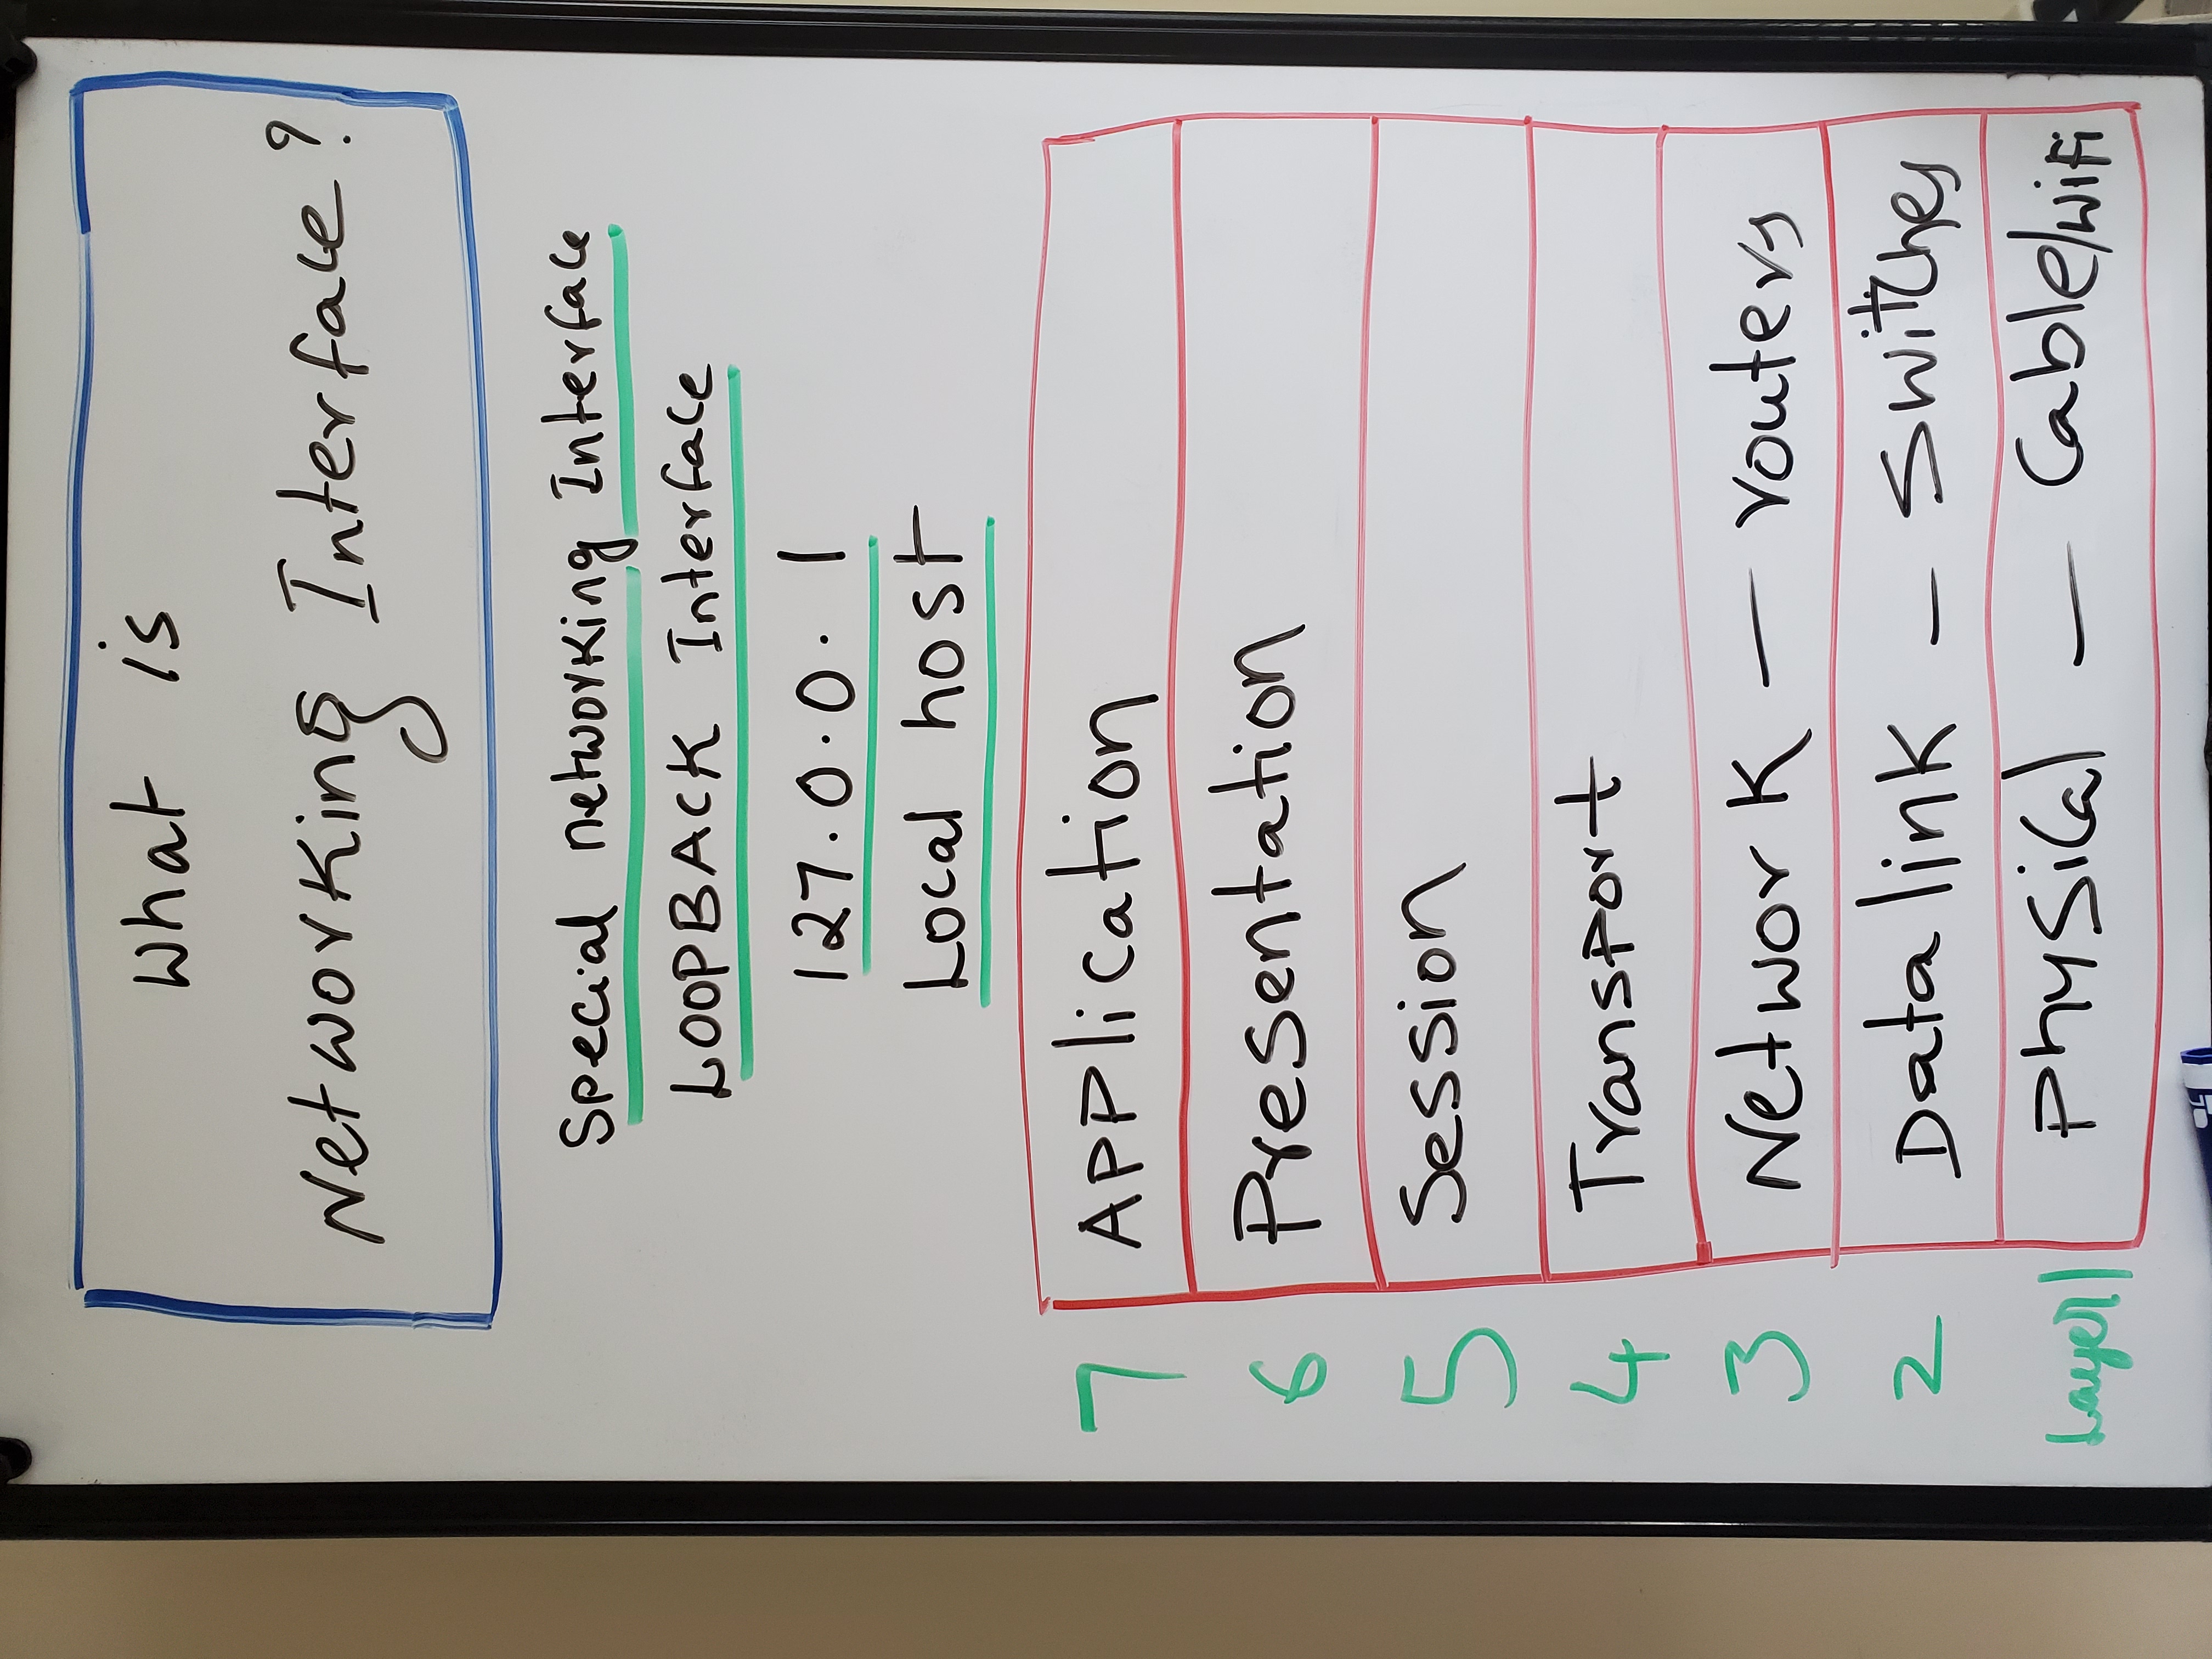 What is
Networking Interface?
Special networking Interface
LOOPBACK Interface
127.0.0.1
Local host
7 Application
6 Presentation
5 Session
4 Transport
3 Network — routers
2 Data link — switches
Layer 1 Physical — Cable/wifi